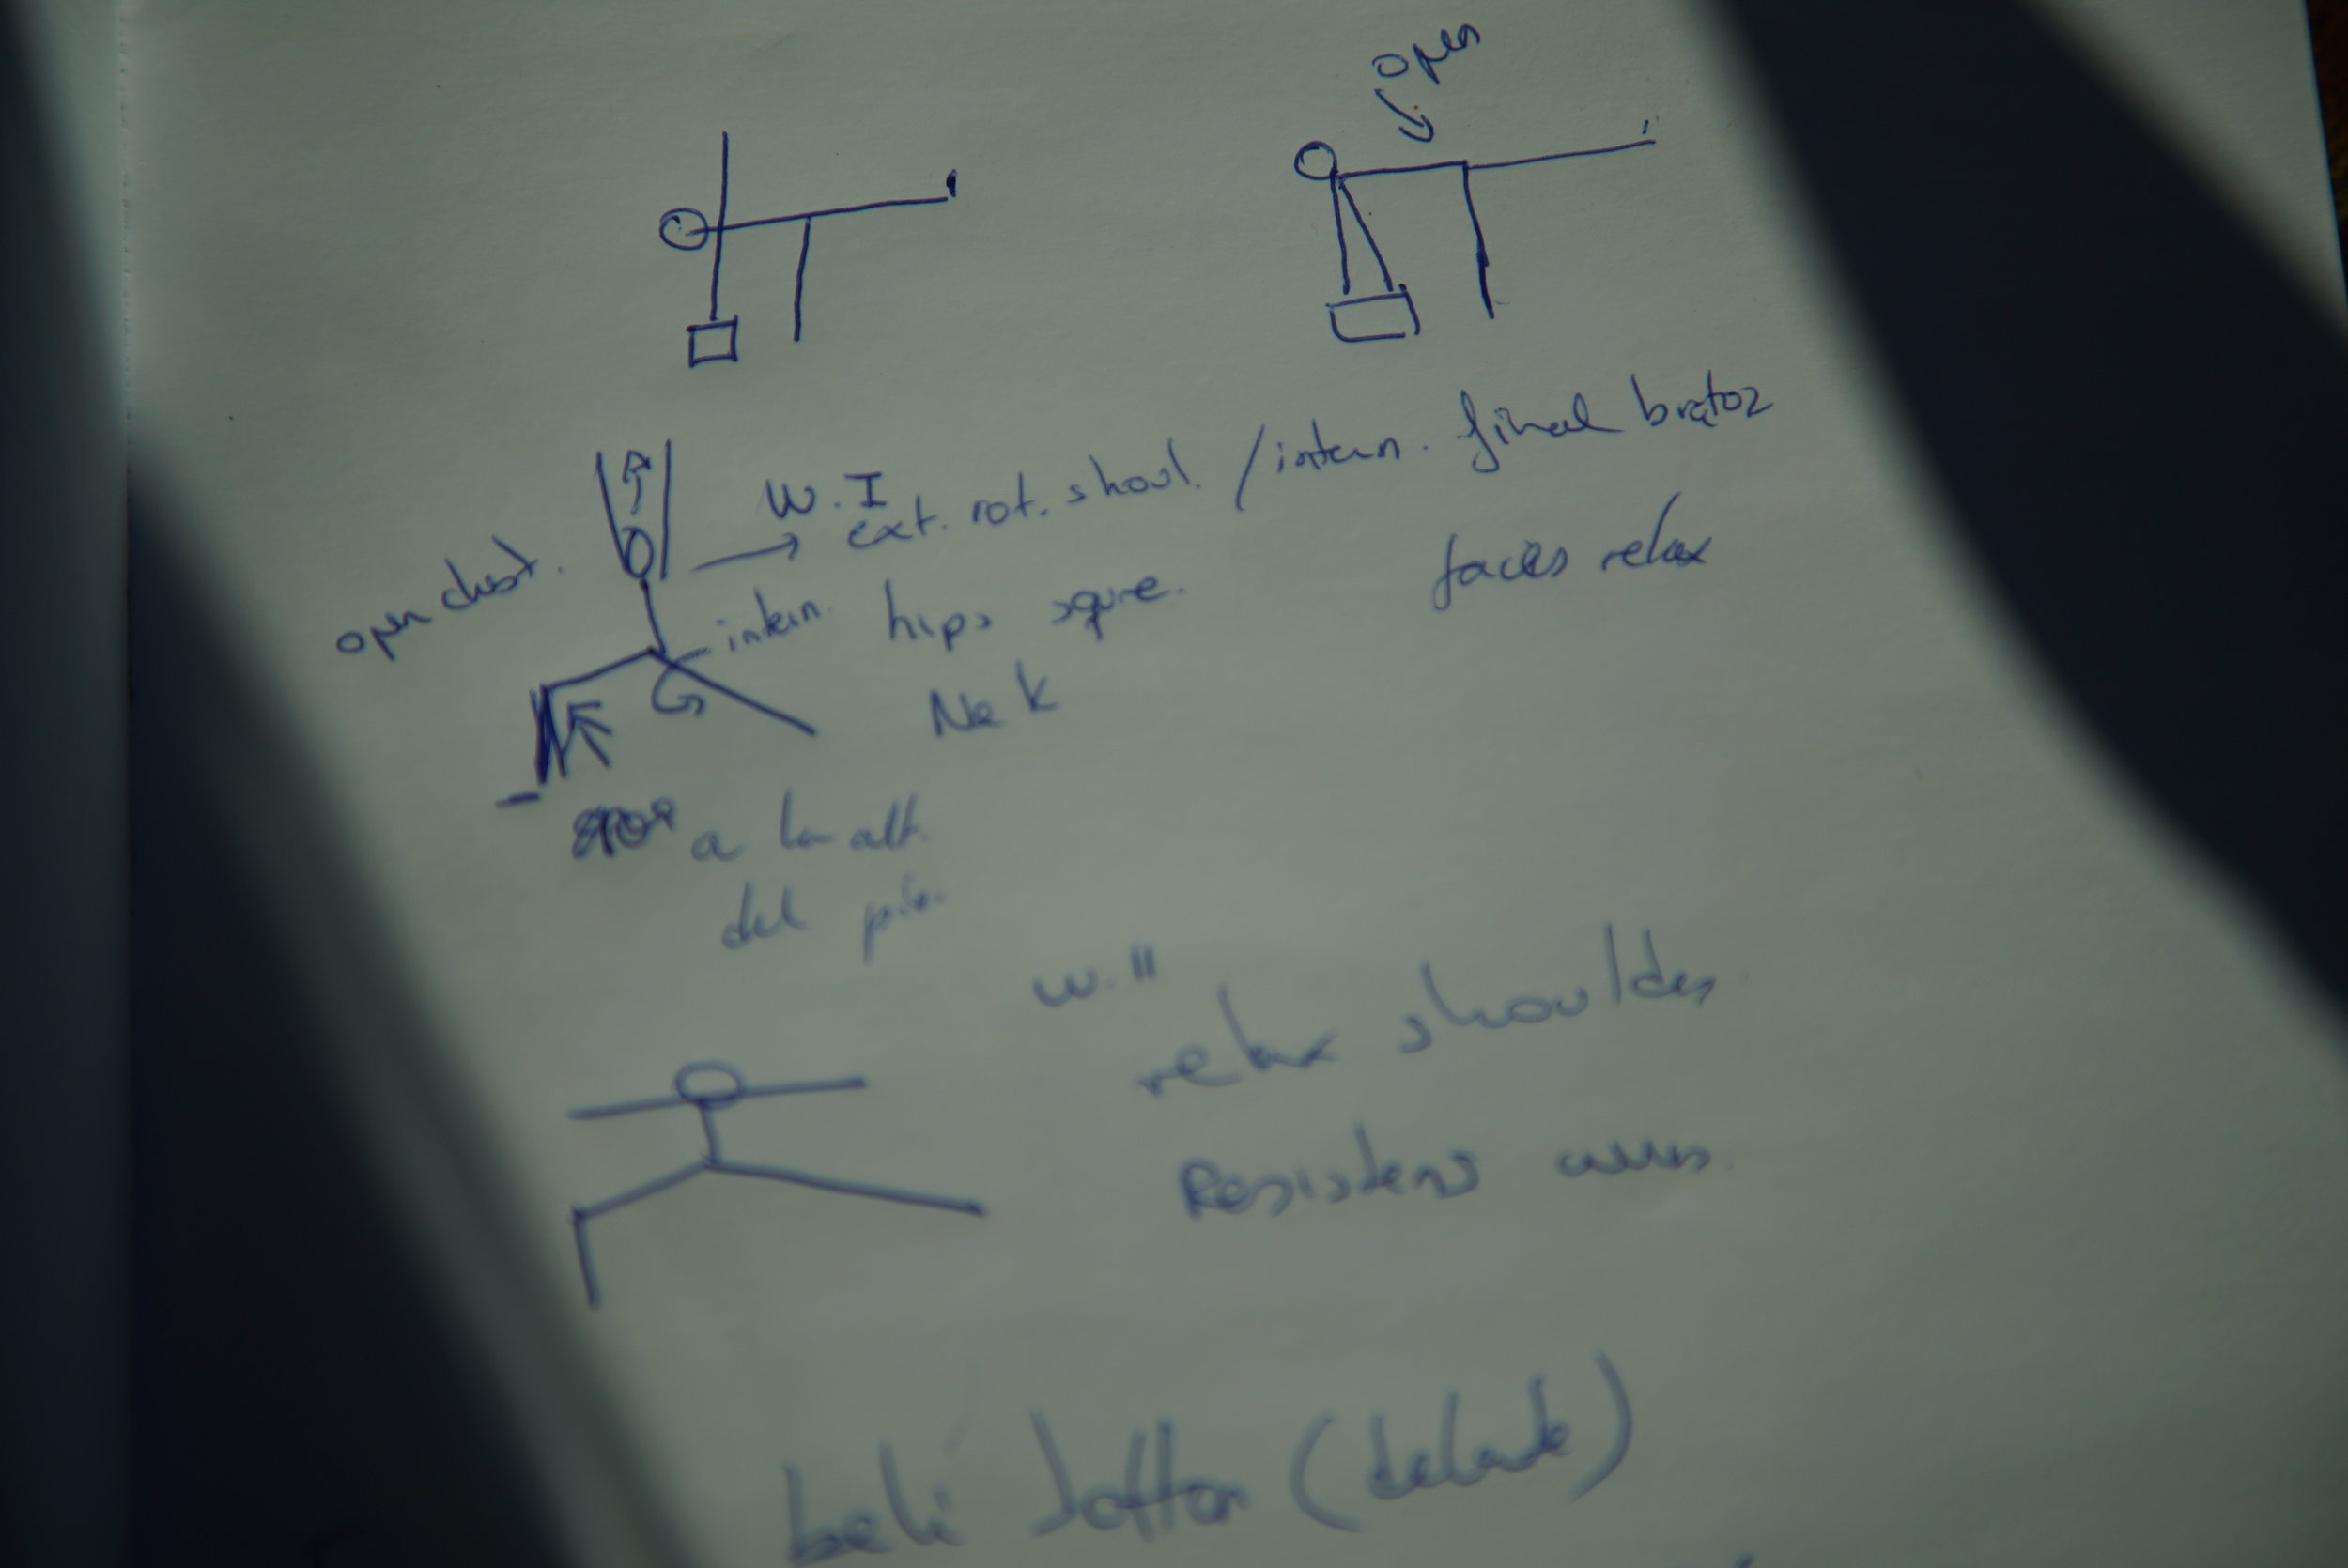 open
W. I
ext. rot. shoul. / intern. final brazoz
open chest.
faces relax
intern. hips squre.
Nek
90º a la alt.
del pie.
W. II
relax shoulders
Resistens arms.
beli botton (delante)